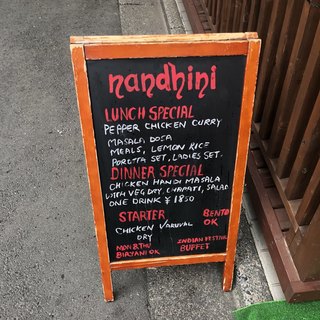 nandhini
LUNCH SPECIAL
PEPPER CHICKEN CURRY
MASALA DOSA
MEALS, LEMON RICE
POROTTA SET, LADIES SET.
DINNER SPECIAL
CHICKEN HANDI MASALA
WITH VEG DRY, CHAPATI, SALAD
ONE DRINK ¥1850
STARTER
CHICKEN VARUVAL
DRY
BENTO
OK
MON & THU
BIRYANI OK
INDIAN FESTIVAL
BUFFET